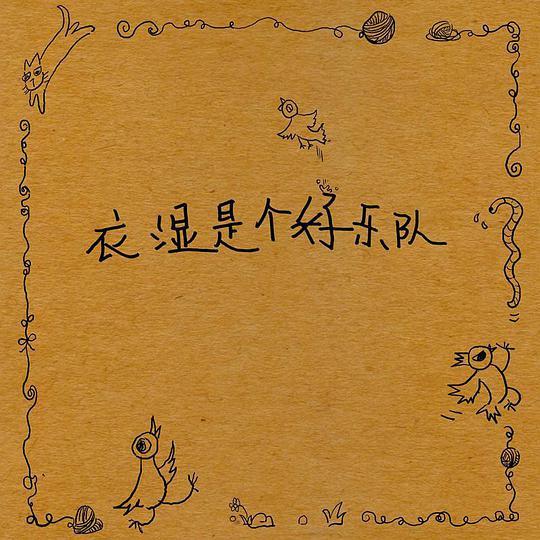 衣湿是个好乐队